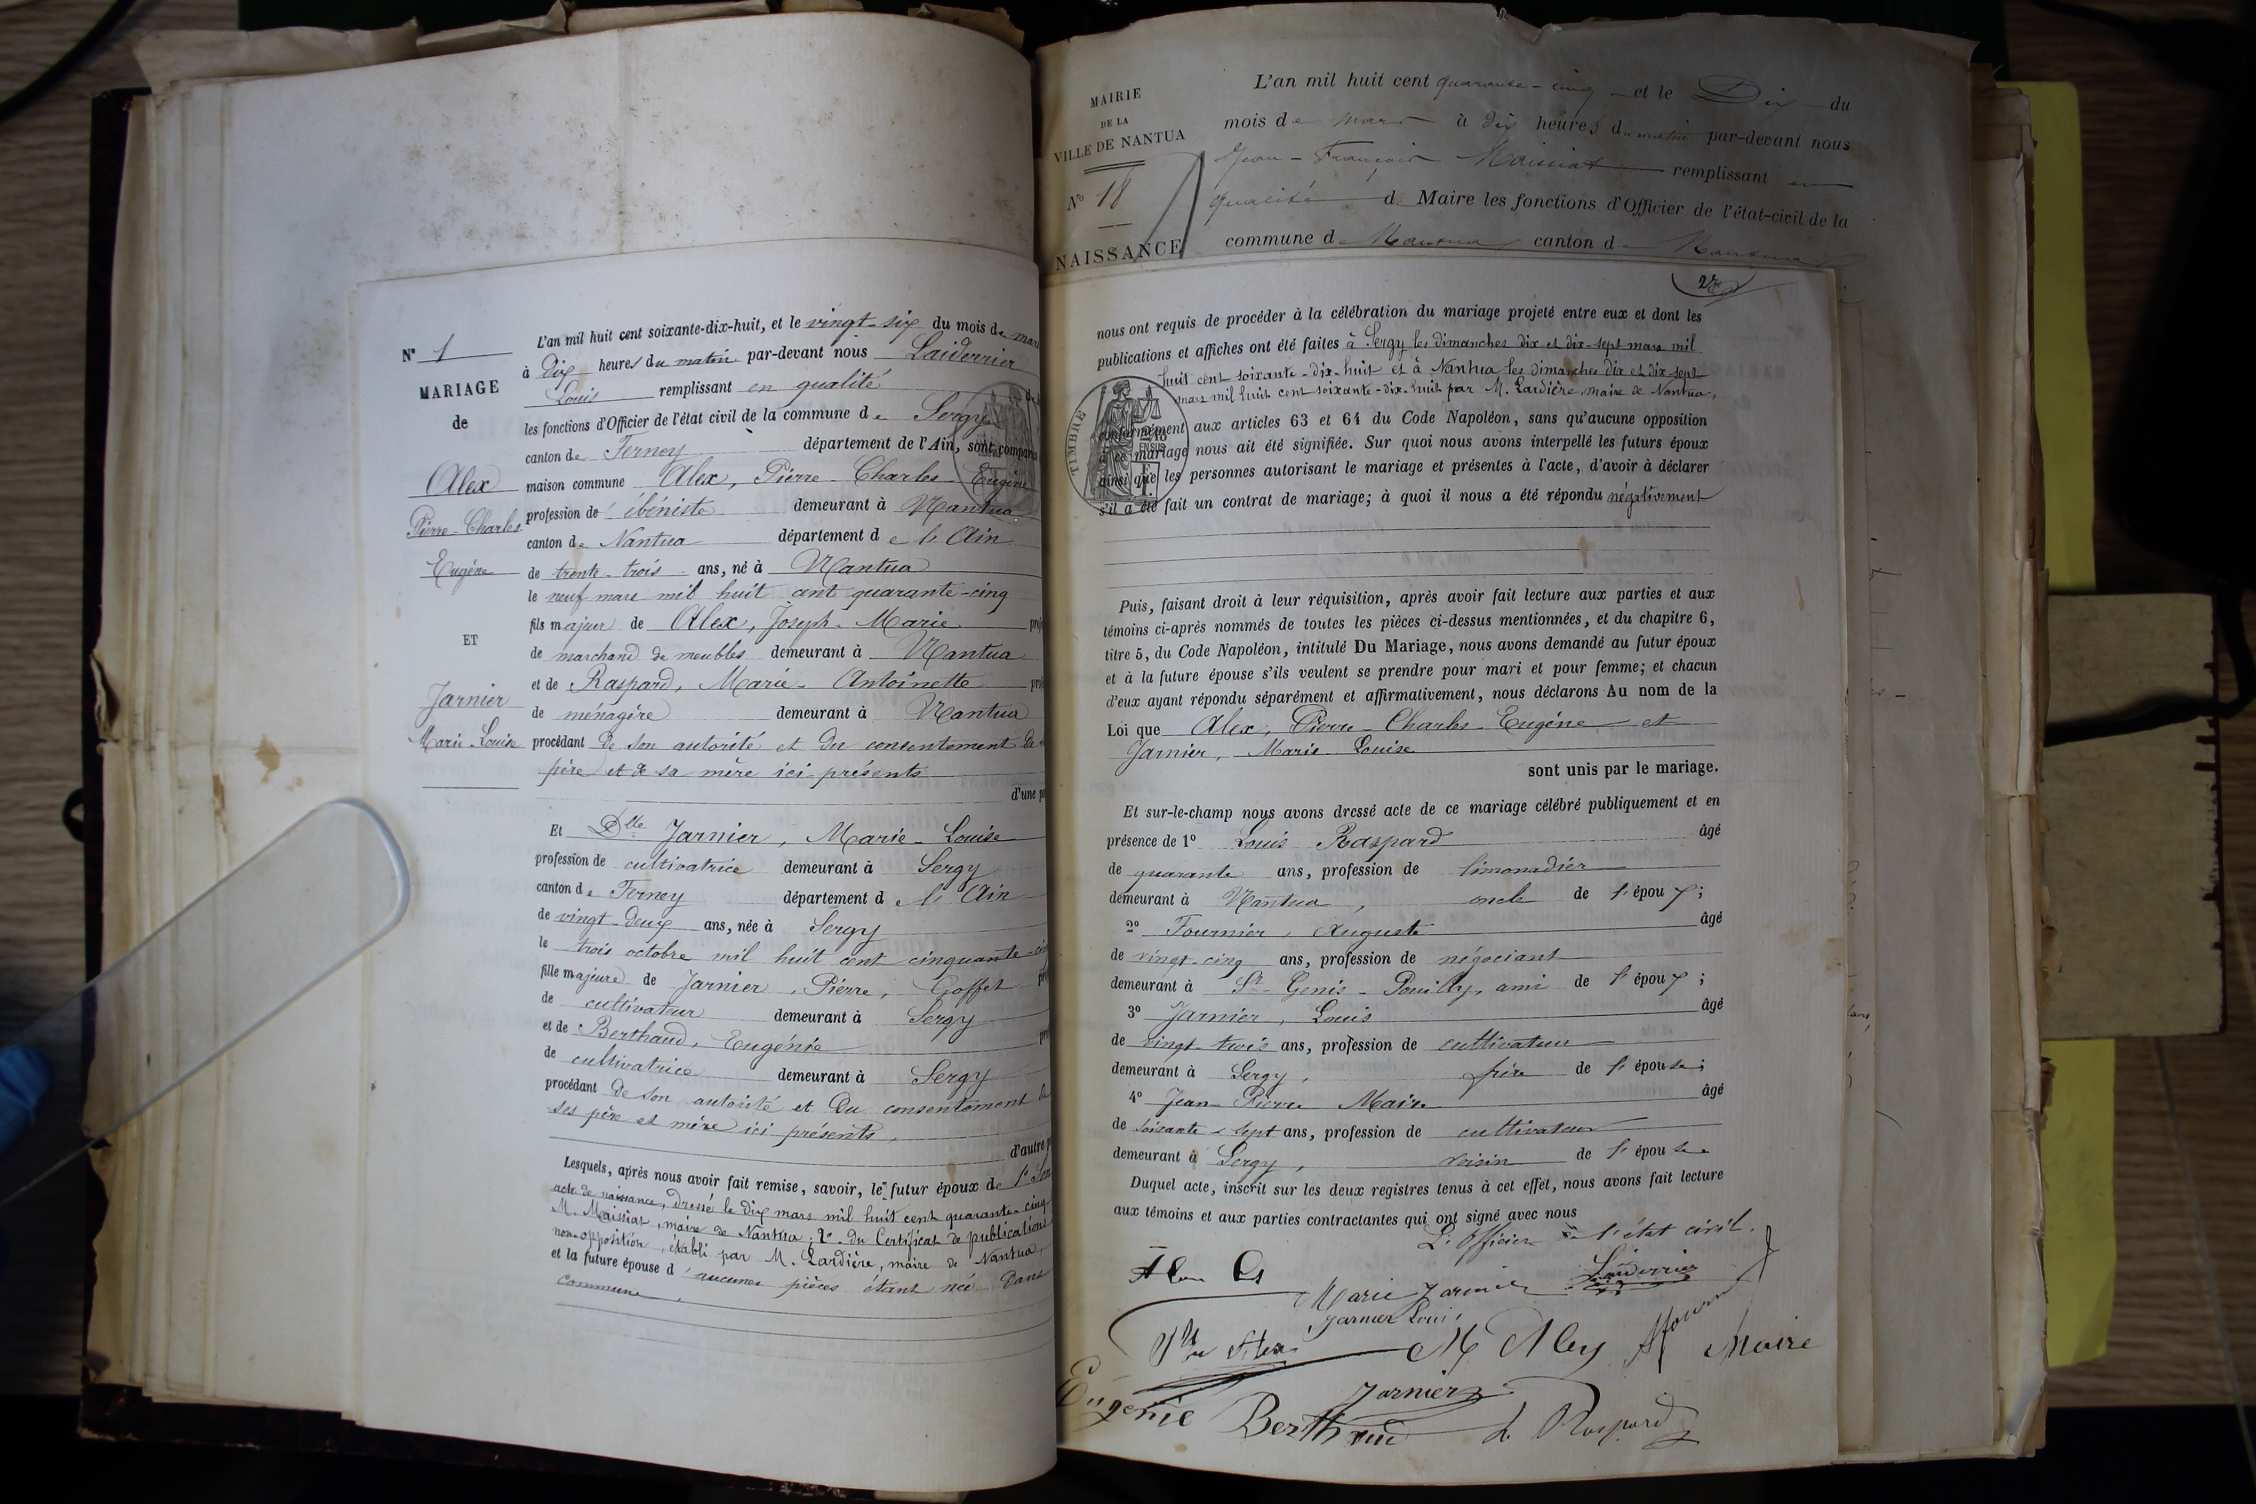 N° 1
MARIAGE
de
Alex
Pierre-Charles
Eugène
ET
Jarnier
Marie-Louise
L'an mil huit cent soixante-dix-huit, et le vingt-six du mois de mars
à dix heures du matin par-devant nous Laiderrier
Louis remplissant en qualité
les fonctions d'Officier de l'état civil de la commune de Sergy
canton de Ferney département de l'Ain, sont comparus
maison commune Alex, Pierre-Charles-Eugène
profession de ébéniste demeurant à Nantua
canton de Nantua département de l'Ain
de trente-trois ans, né à Nantua
le neuf mars mil huit cent quarante-cinq
fils majeur de Alex, Joseph-Marie
de marchand de meubles demeurant à Nantua
et de Raspard, Marie-Antoinette
de ménagère demeurant à Nantua
procédant de son autorité et du consentement de
père et de sa mère ici présents
d'une
Et Dlle Jarnier, Marie-Louise
profession de cultivatrice demeurant à Sergy
canton de Ferney département de l'Ain
de vingt-deux ans, née à Sergy
le trois octobre mil huit cent cinquante-
fille majeure de Jarnier, Pierre, Goffet
de cultivateur demeurant à Sergy
et de Berthaud, Eugénie
de cultivatrice demeurant à Sergy
procédant de son autorité et du consentement de
ses père et mère ici présents,
d'autre
Lesquels, après nous avoir fait remise, savoir, le futur époux de 1° son
acte de naissance, dressé le dix mars mil huit cent quarante-cinq
M. Maissiat, maire de Nantua; 2° du Certificat de publications
non-opposition, établi par M. Lardière, maire de Nantua,
et la future épouse d'aucunes pièces étant née dans
commune,
MAIRIE
DE LA
VILLE DE NANTUA
No 18
NAISSANCE
L'an mil huit cent quarante-cinq et le Dix du
mois de mars à dix heures du matin par-devant nous
Jean-François Maissiat remplissant en
qualité d Maire les fonctions d'Officier de l'état-civil de la
commune de Nantua canton de Nantua
nous ont requis de procéder à la célébration du mariage projeté entre eux et dont les
publications et affiches ont été faites à Sergy les dimanches dix et dix-sept mars mil
huit cent soixante-dix-huit et à Nantua les dimanches dix et dix-sept
mars mil huit cent soixante-dix-huit par M. Lardière, maire de Nantua,
TIMBRE
conformément aux articles 63 et 64 du Code Napoléon, sans qu'aucune opposition
à ce mariage nous ait été signifiée. Sur quoi nous avons interpellé les futurs époux
ainsi que les personnes autorisant le mariage et présentes à l'acte, d'avoir à déclarer
s'il a été fait un contrat de mariage; à quoi il nous a été répondu négativement
Puis, faisant droit à leur réquisition, après avoir fait lecture aux parties et aux
témoins ci-après nommés de toutes les pièces ci-dessus mentionnées, et du chapitre 6,
titre 5, du Code Napoléon, intitulé Du Mariage, nous avons demandé au futur époux
et à la future épouse s'ils veulent se prendre pour mari et pour femme; et chacun
d'eux ayant répondu séparément et affirmativement, nous déclarons Au nom de la
Loi que Alex, Pierre-Charles-Eugène et
Jarnier, Marie-Louise
sont unis par le mariage.
Et sur-le-champ nous avons dressé acte de ce mariage célébré publiquement et en
présence de 1° Louis Raspard âgé
de quarante ans, profession de limonadier
demeurant à Nantua, oncle de l'époux;
2° Fournier, Auguste âgé
de vingt-cinq ans, profession de négociant
demeurant à St-Genis-Pouilly, ami de l'époux;
3° Jarnier, Louis âgé
de vingt-trois ans, profession de cultivateur
demeurant à Sergy, frère de l'épouse;
4° Jean-Pierre Maire âgé
de soixante-sept ans, profession de cultivateur
demeurant à Sergy, voisin de l'épouse
Duquel acte, inscrit sur les deux registres tenus à cet effet, nous avons fait lecture
aux témoins et aux parties contractantes qui ont signé avec nous
L'Officier de l'état civil.
Laiderrier
Marie Jarnier
Jarnier Loui
M Alex
Maire
Jarnier
Eugenie Berthaud
L. Raspard